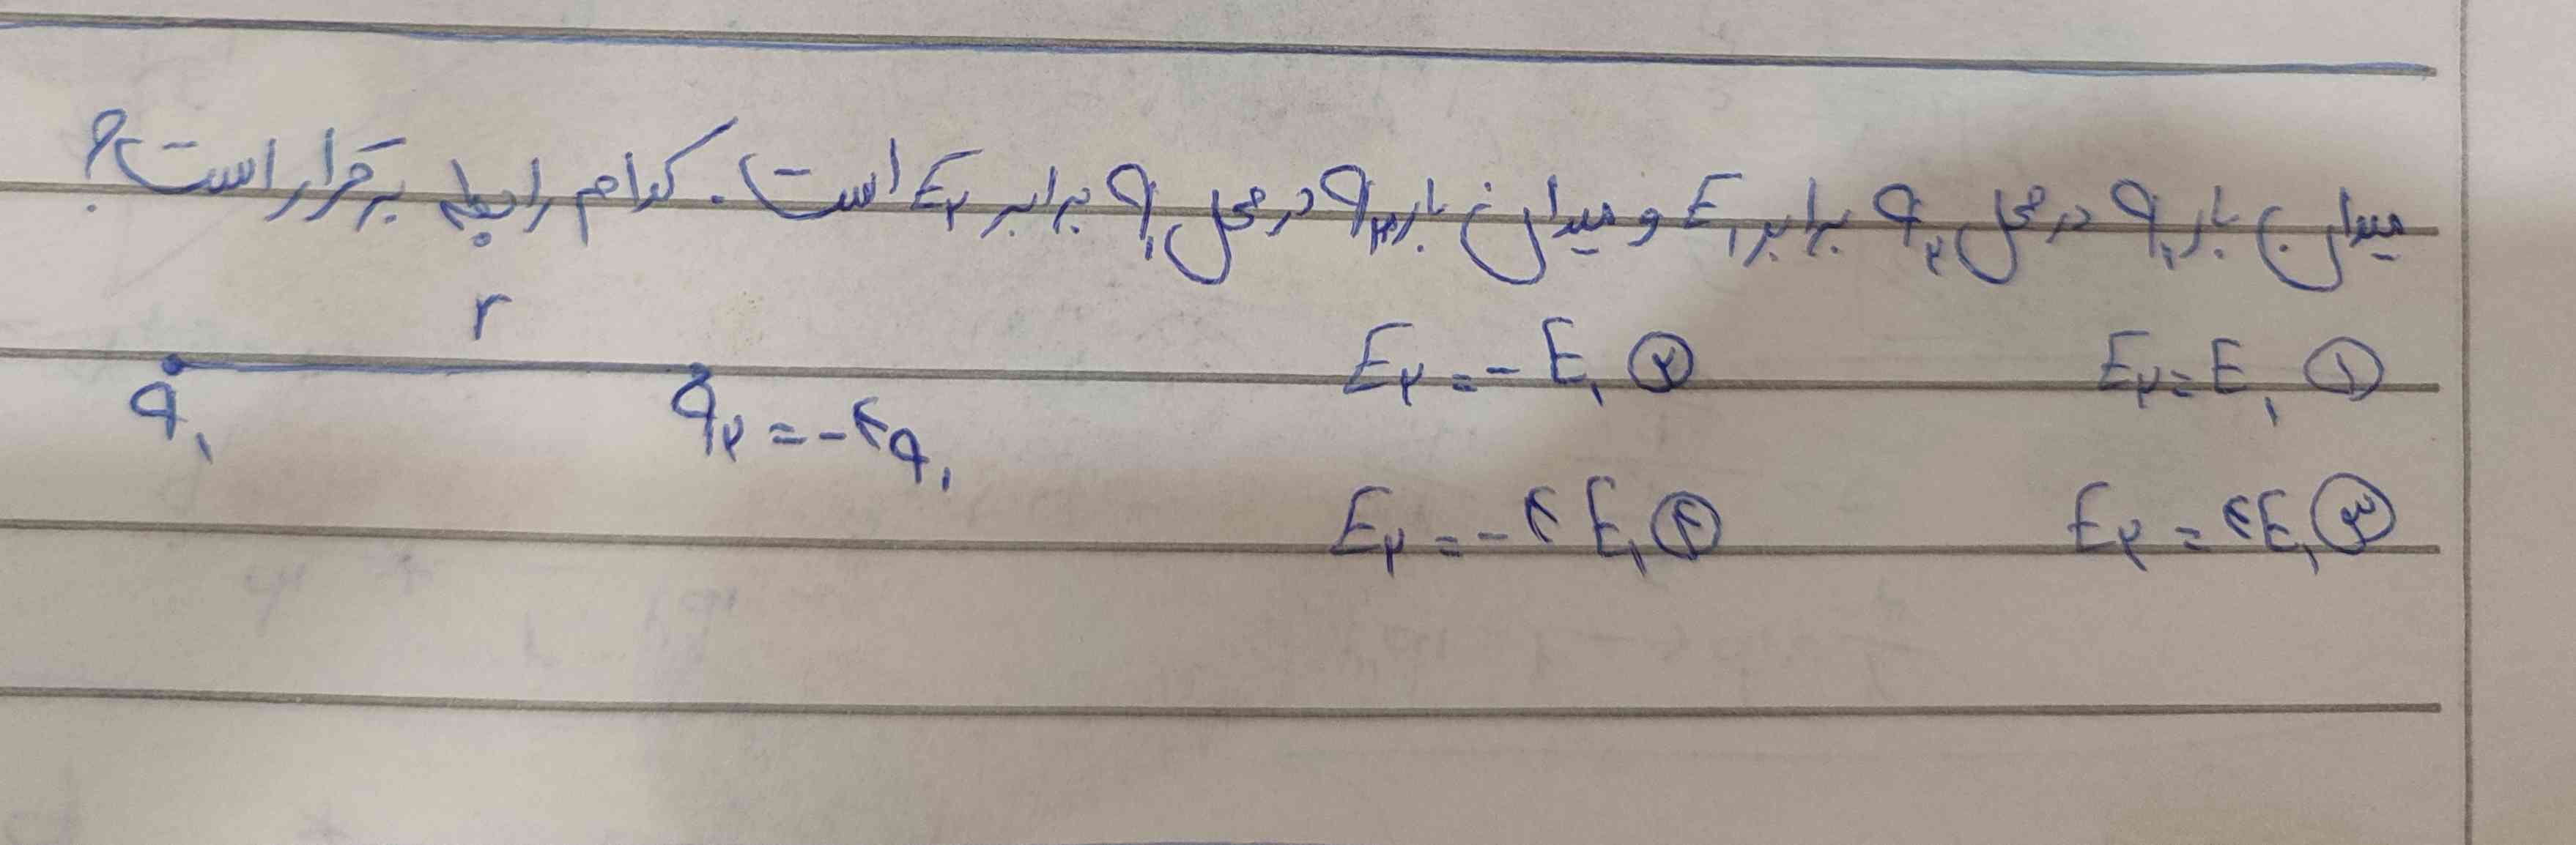 میدان بار q₁ در محل q₂ برابر E₁ و میدان بار q₂ در محل q₁ برابر E₂ است. کدام رابطه برقرار است؟
① E₂ = E₁ ② E₂ = - E₁
r
q₁ q₂ = -۴q₁
③ E₂ = ۴E₁ ④ E₂ = - ۴ E₁